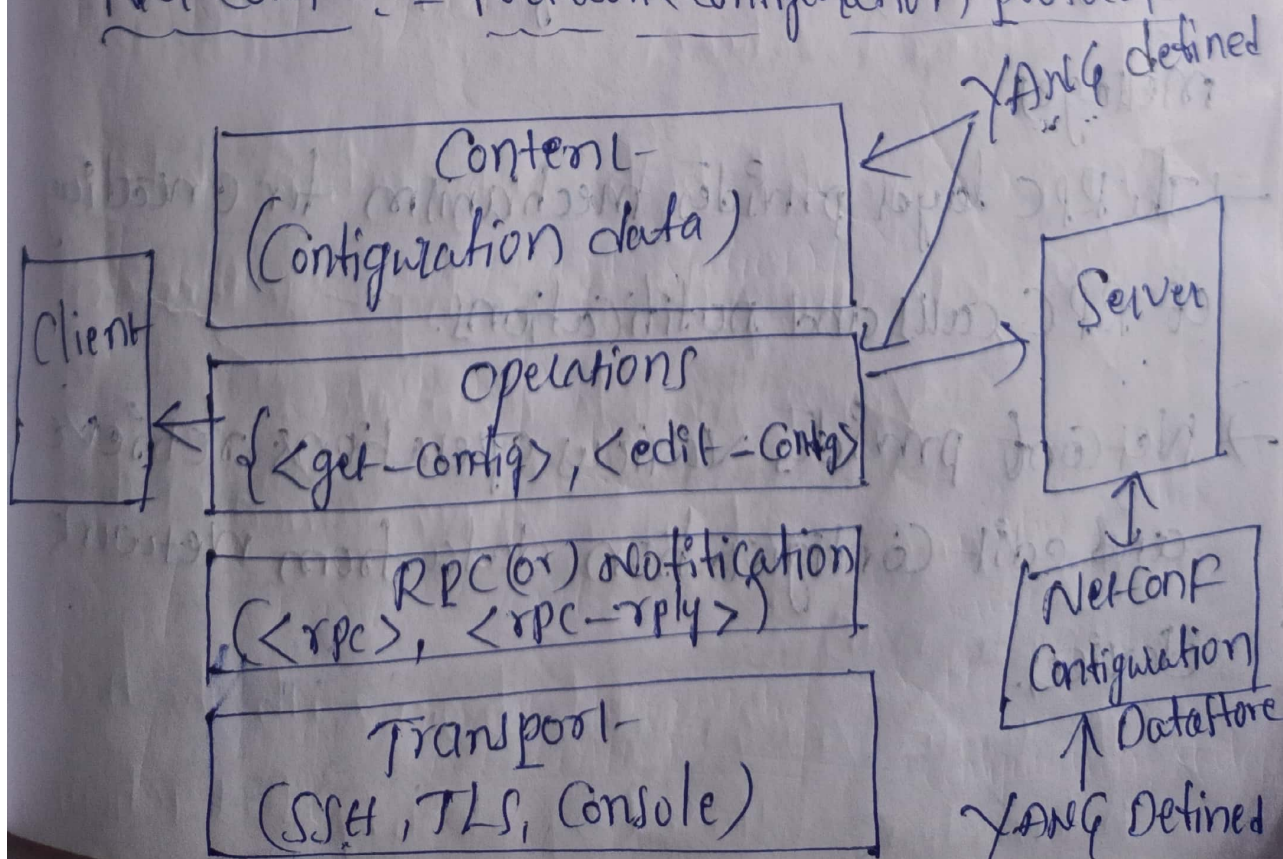 YANG defined
Content
(Configuration data)
Client
Server
Operations
{<get-config>, <edit-Config>
RPC (or) Notification
(<rpc>, <rpc-rply>)
NetConf
Configuration
DataStore
Transport
(SSH, TLS, Console)
YANG Defined